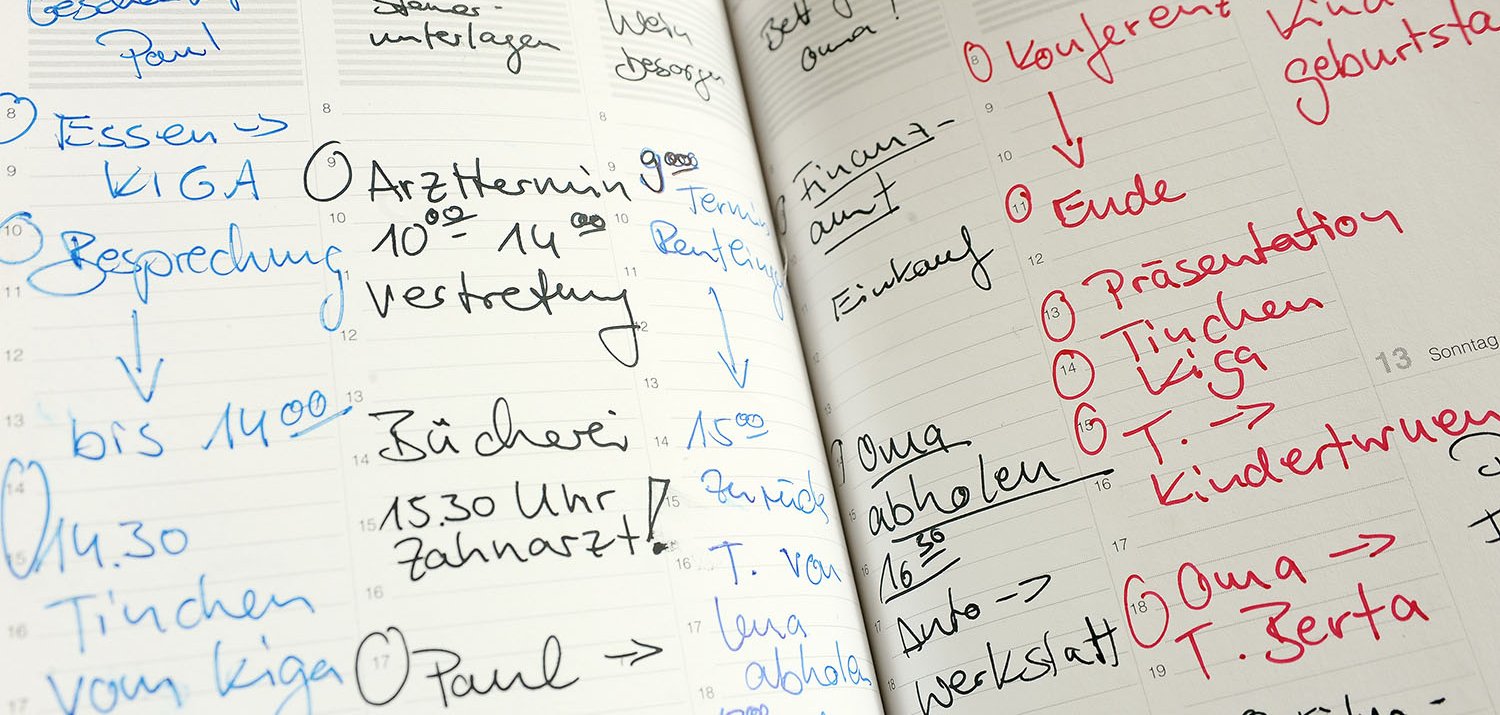 Paul
8
Essen ->
9
KIGA
10
Besprechung
11
12
13
bis 14 00
14
14.30
15
Tinchen
16
vom Kiga
17
Steuer-
unterlagen
8
9
Arzttermin
10
10 00 14 00
11
Vertretung
12
13
Bücherei
14
15.30 Uhr
15
Zahnarzt!
16
17
Paul ->
Wein
besorgen
8
9
9 00
Termin
10
11
12
13
14
15 00
15
Zurück
16
T. von
17
Lena
abholen
18
Bett
Oma!
Finanz-
amt
Einkauf
12
13
Oma
abholen
15
16 30
16
Auto ->
17
Werkstatt
18
8
Konferenz
9
10
11
Ende
12
13
Präsentation
14
Tinchen
Kiga
15
T. ->
Kinderturnen
16
17
18
Oma ->
T. Berta
19
geburtsta
13 Sonntag